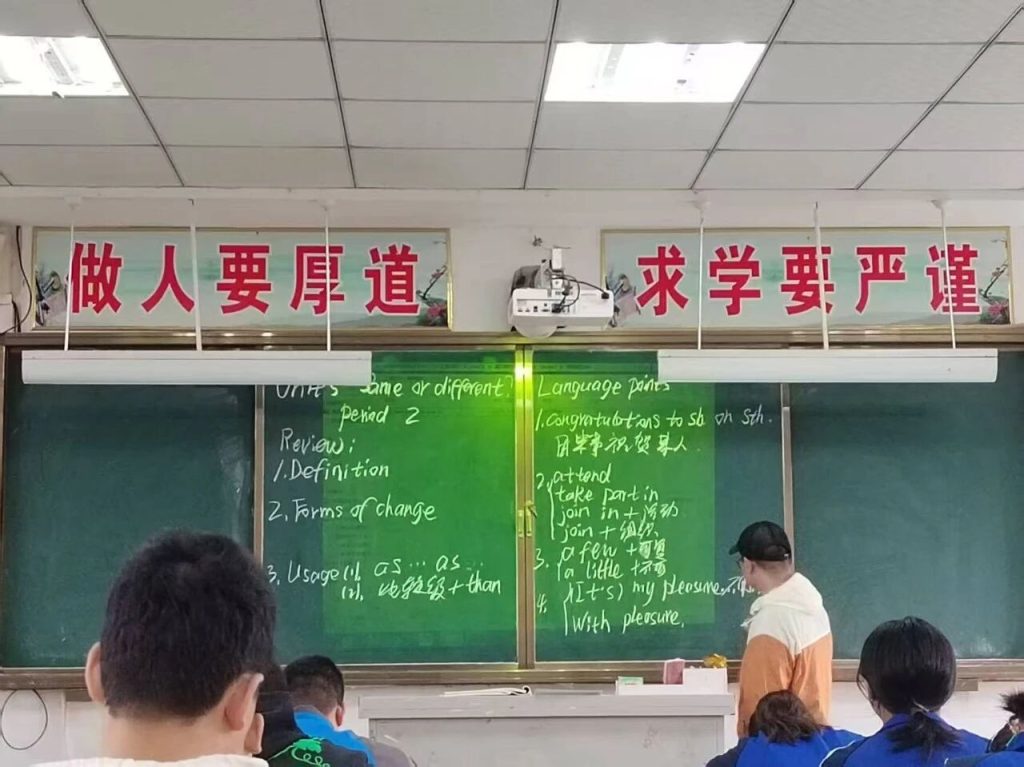 做人要厚道
求学要严谨
Unit 5 Same or different?
period 2
Review:
1. Definition
2. Forms of change
3. Usage (1). as … as …
(2). 比较级 + than
Language points
1. congratulations to sb on sth.
因某事祝贺某人.
2. attend
take part in
join in + 活动
join + 组织.
3. a few + 可复
a little + 不可
4. (It's) my pleasure.
With pleasure.